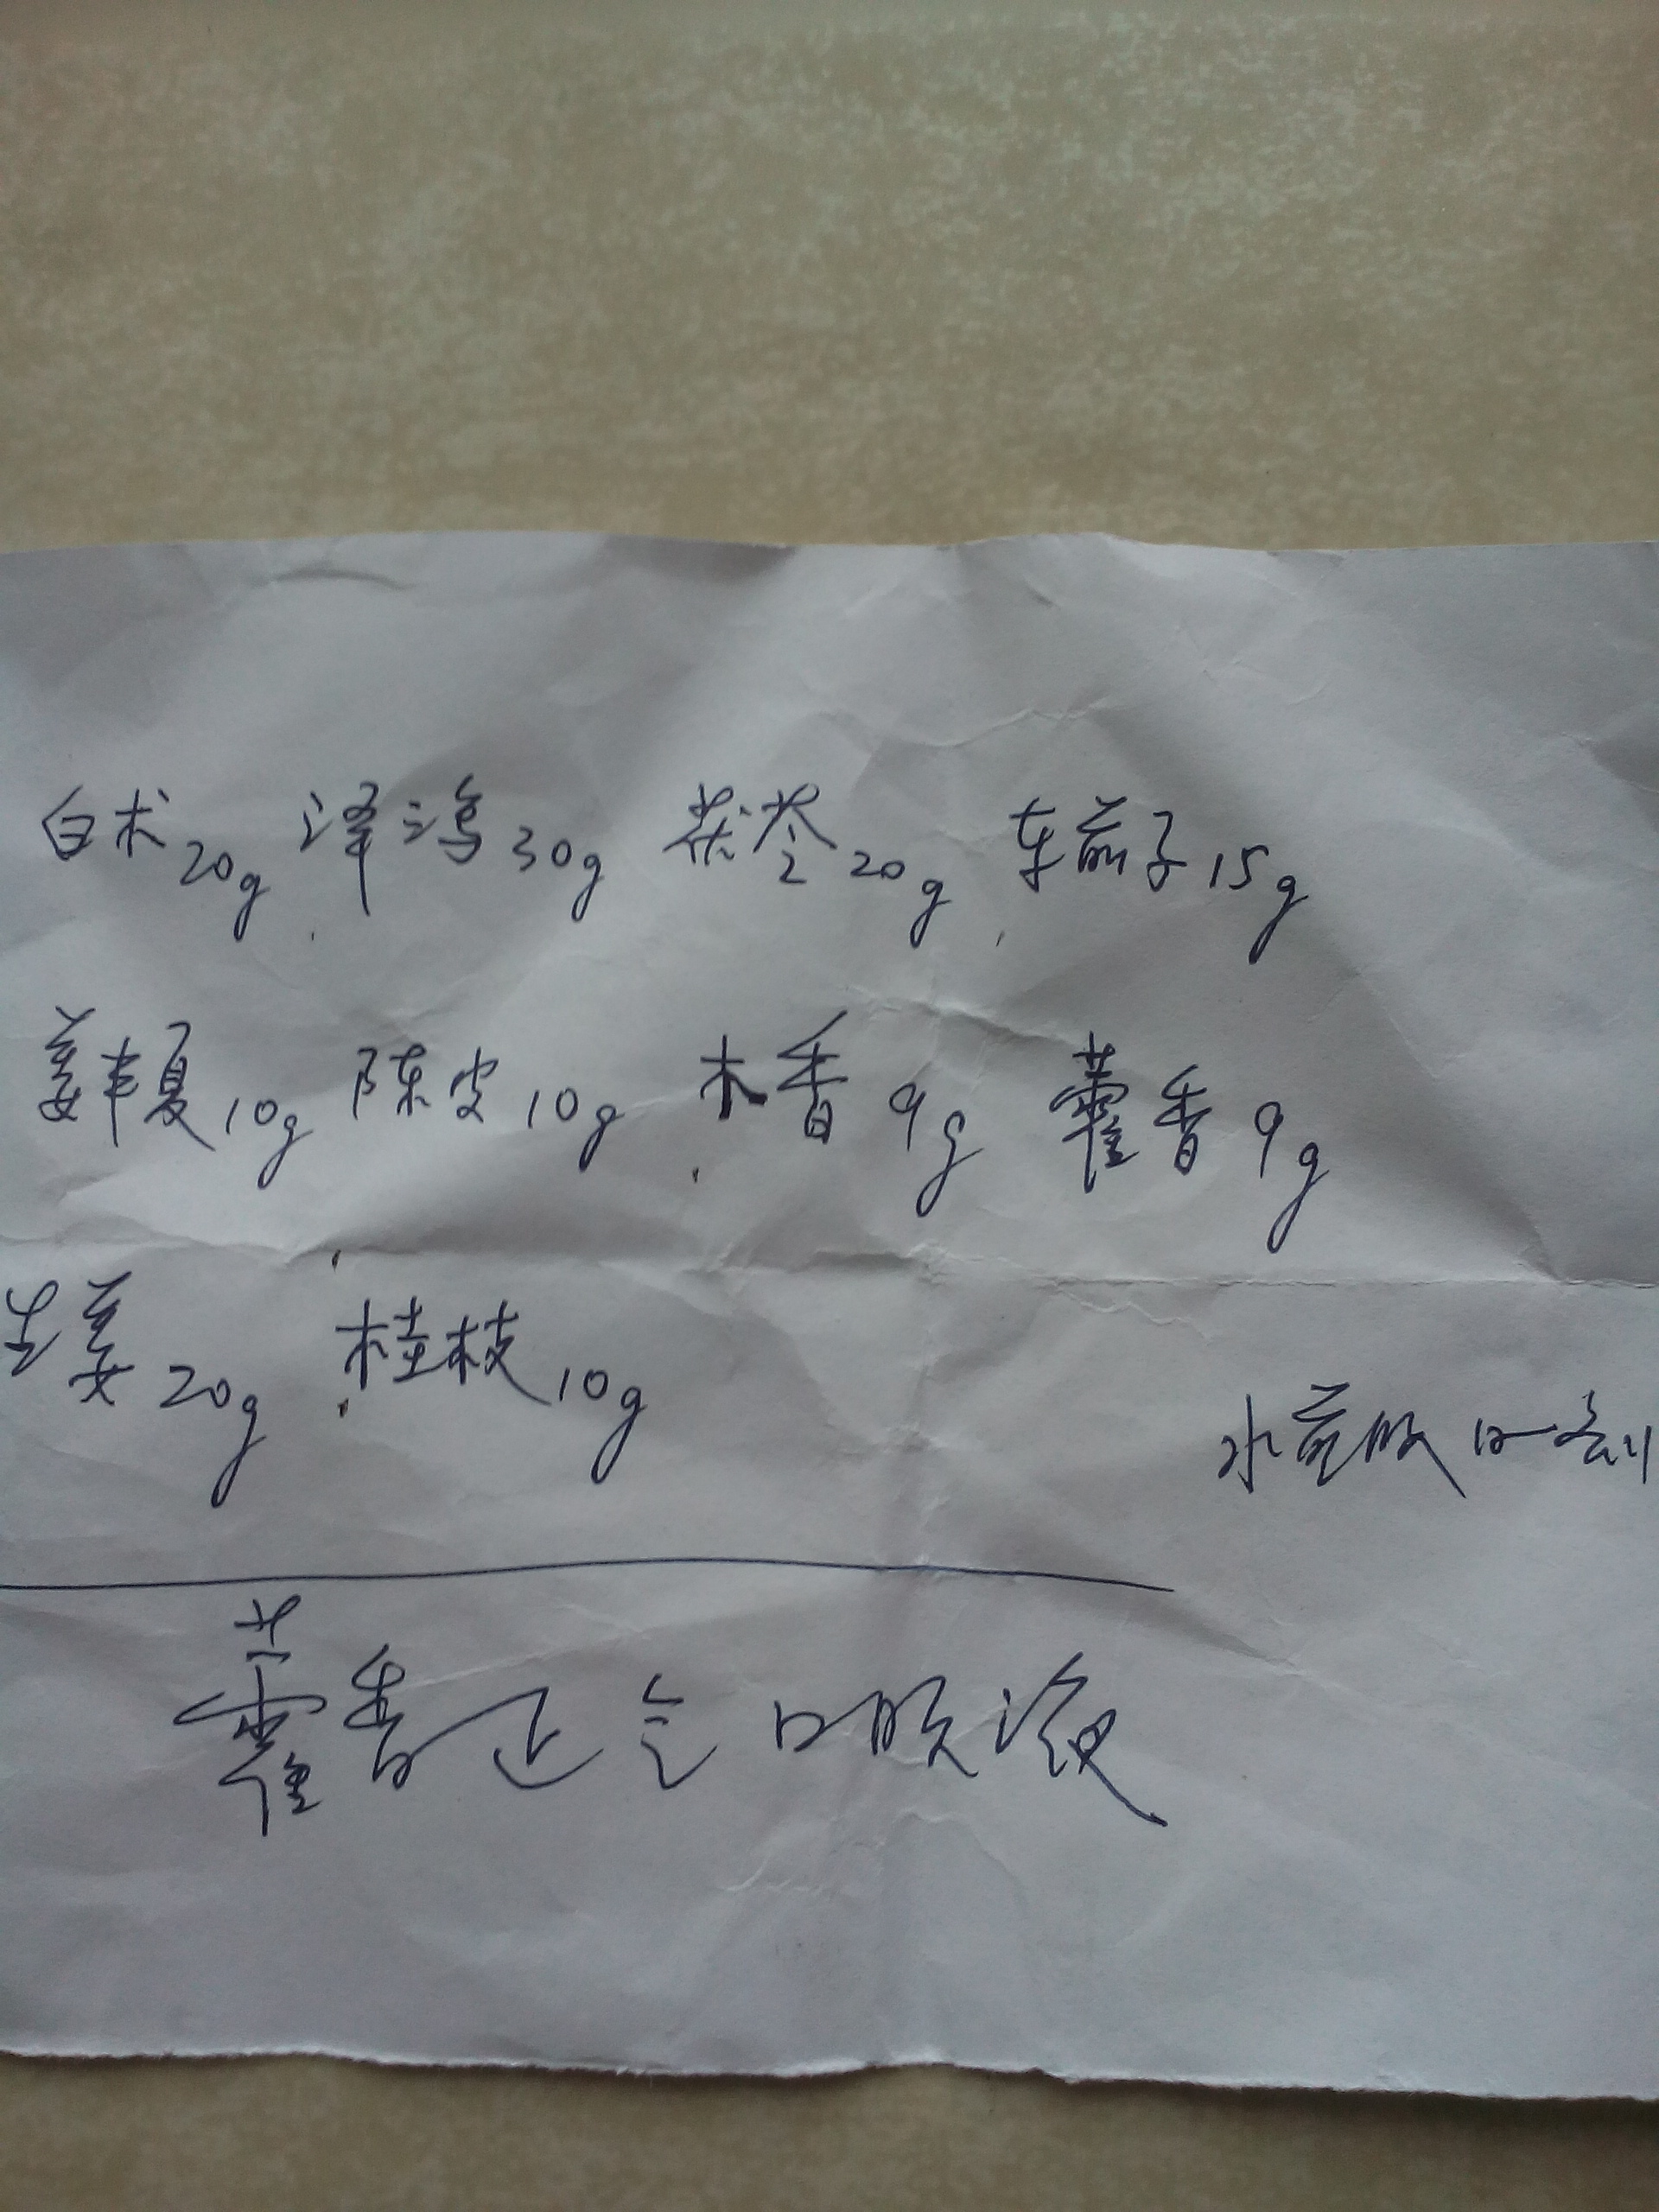 白术20g 泽泻30g 茯苓20g 车前子15g
姜半夏10g 陈皮10g 木香9g 藿香9g
生姜20g 桂枝10g
水煎服 日一剂
藿香正气口服液